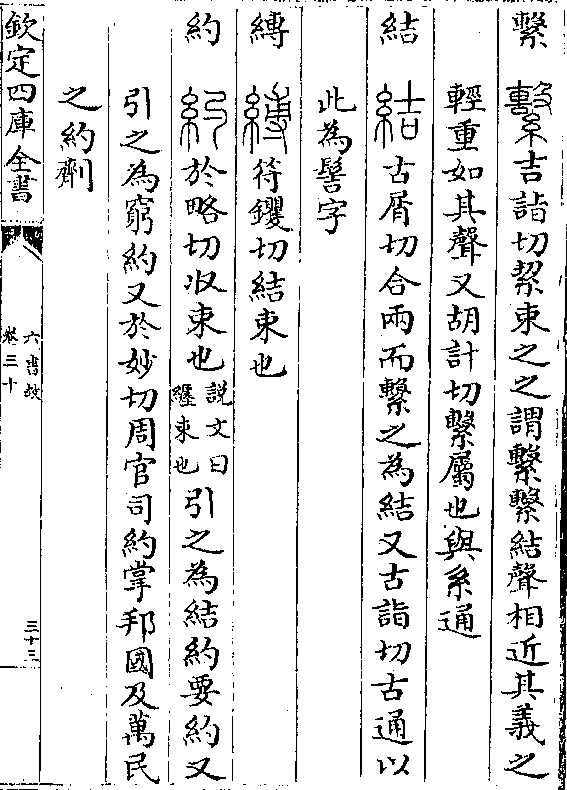 繫 𣫦吉詣切絜束之之謂繫繫結聲相近其義之
輕重如其聲又胡計切繫屬也與系通
結 結古屑切合兩而繫之為結又古詣切古通以
此為髻字
縛 縛符钁切結束也
約 約於略切收束也説文曰纒束也引之為結約要約又
引之為窮約又於妙切周官司約掌邦國及萬民
之約劑
欽定四庫全書
六書故
卷三十
三十三